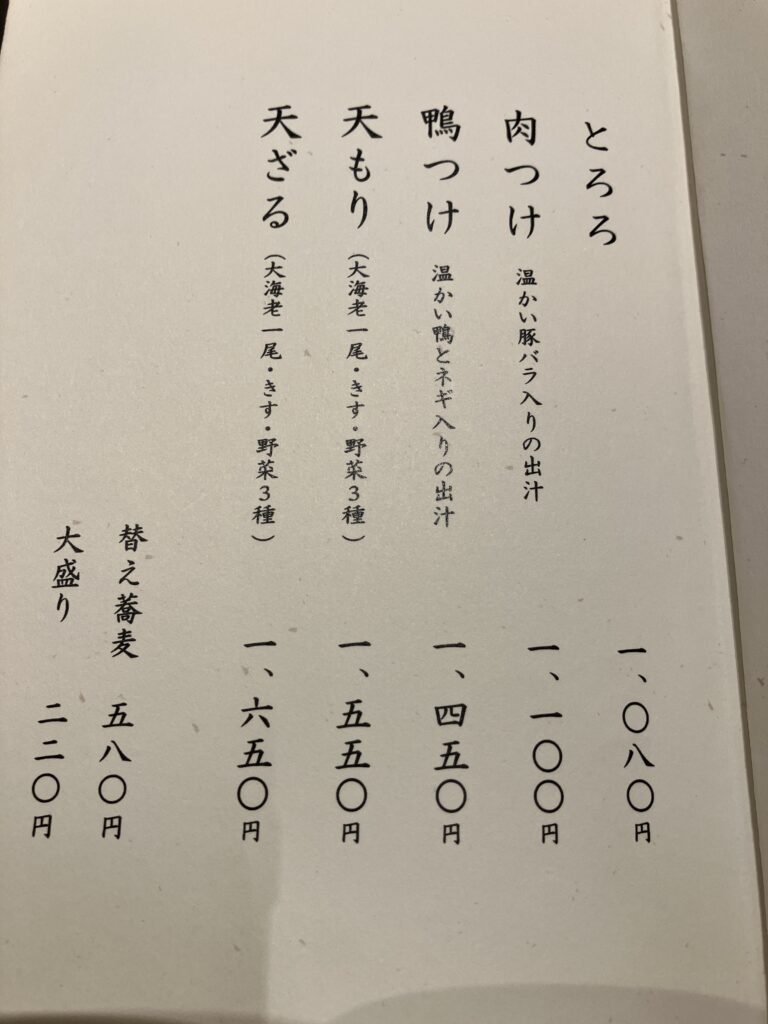 とろろ 一、〇八〇円
肉つけ 温かい豚バラ入りの出汁 一、一〇〇円
鴨つけ 温かい鴨とネギ入りの出汁 一、四五〇円
天もり（大海老一尾・きす・野菜３種） 一、五五〇円
天ざる（大海老一尾・きす・野菜３種） 一、六五〇円
替え蕎麦 五八〇円
大盛り 二二〇円